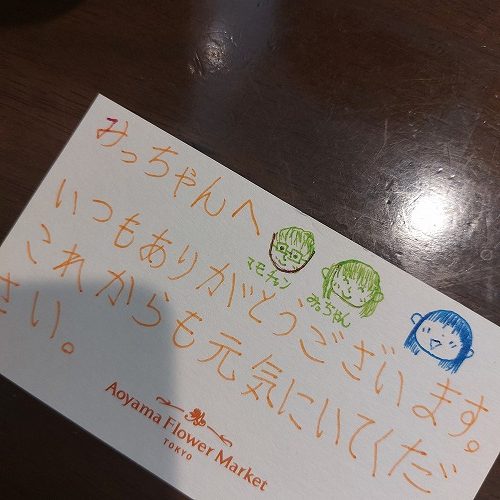 みっちゃんへ
マモチャン
みっちゃん
いつもありがとうございます。
これからも元気にいてくだ
さい。
Aoyama Flower Market
TOKYO